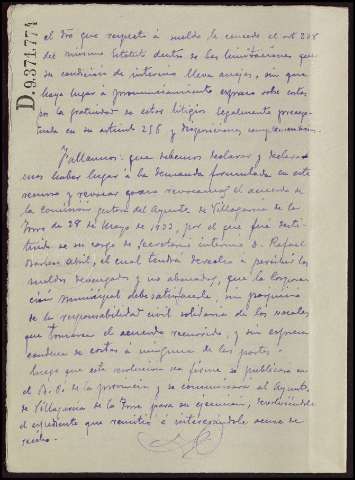 D.9.371.771
el dro que respecto á sueldo le concede el art 208
del mismo Estatuto dentro de las limitaciones que
su condición de interino lleva anejas, sin que
haya lugar á pronunciamiento expreso sobre costas
por la gratuidad en estos litigios legalmente precep-
tuada en su artículo 258 y disposiciones complementarias.
Fallamos: que debemos declarar y declara-
mos haber lugar á la demanda formulada en este
recurso y revocar como revocamos el acuerdo de
la Comisión gestora del Ayunto de Villagarcía de la
Torre de 28 de Mayo de 1933, por el que fué desti-
tuido de su cargo de Secretario interino D. Rafael
Abril, el cual tendrá derecho á percibir los
sueldos devengados y no abonados, que la Corpora-
ción Municipal debe satisfacerle, sin perjuicio
de la responsabilidad civil solidaria de los vocales
que tomaron el acuerdo recurrido, y sin expresa
condena de costas á ninguna de las partes.
Luego que esta resolución sea firme se publicará en
el B. O. de la provincia y se comunicará al Ayunto
de Villagarcía de la Torre para su ejecución, devolviéndole
el expediente que remitió é interesándole acuse de
recibo.